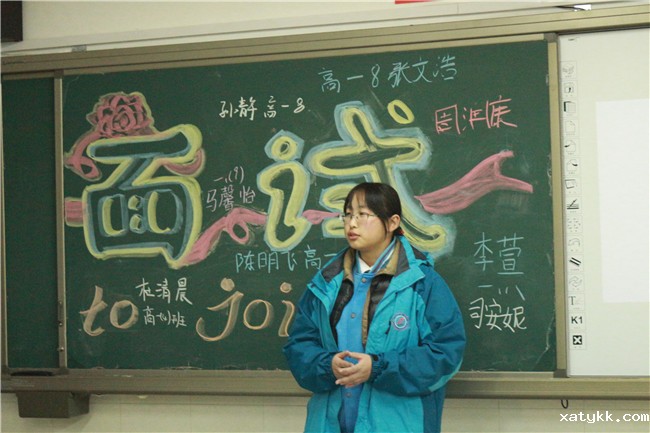 高一8 张文浩
孙静 高一8
面试
一、(9)
马馨怡
陈明飞 高一
李萱
一 八
司安妮
杜清晨
to join
T
K1
xatykk.com